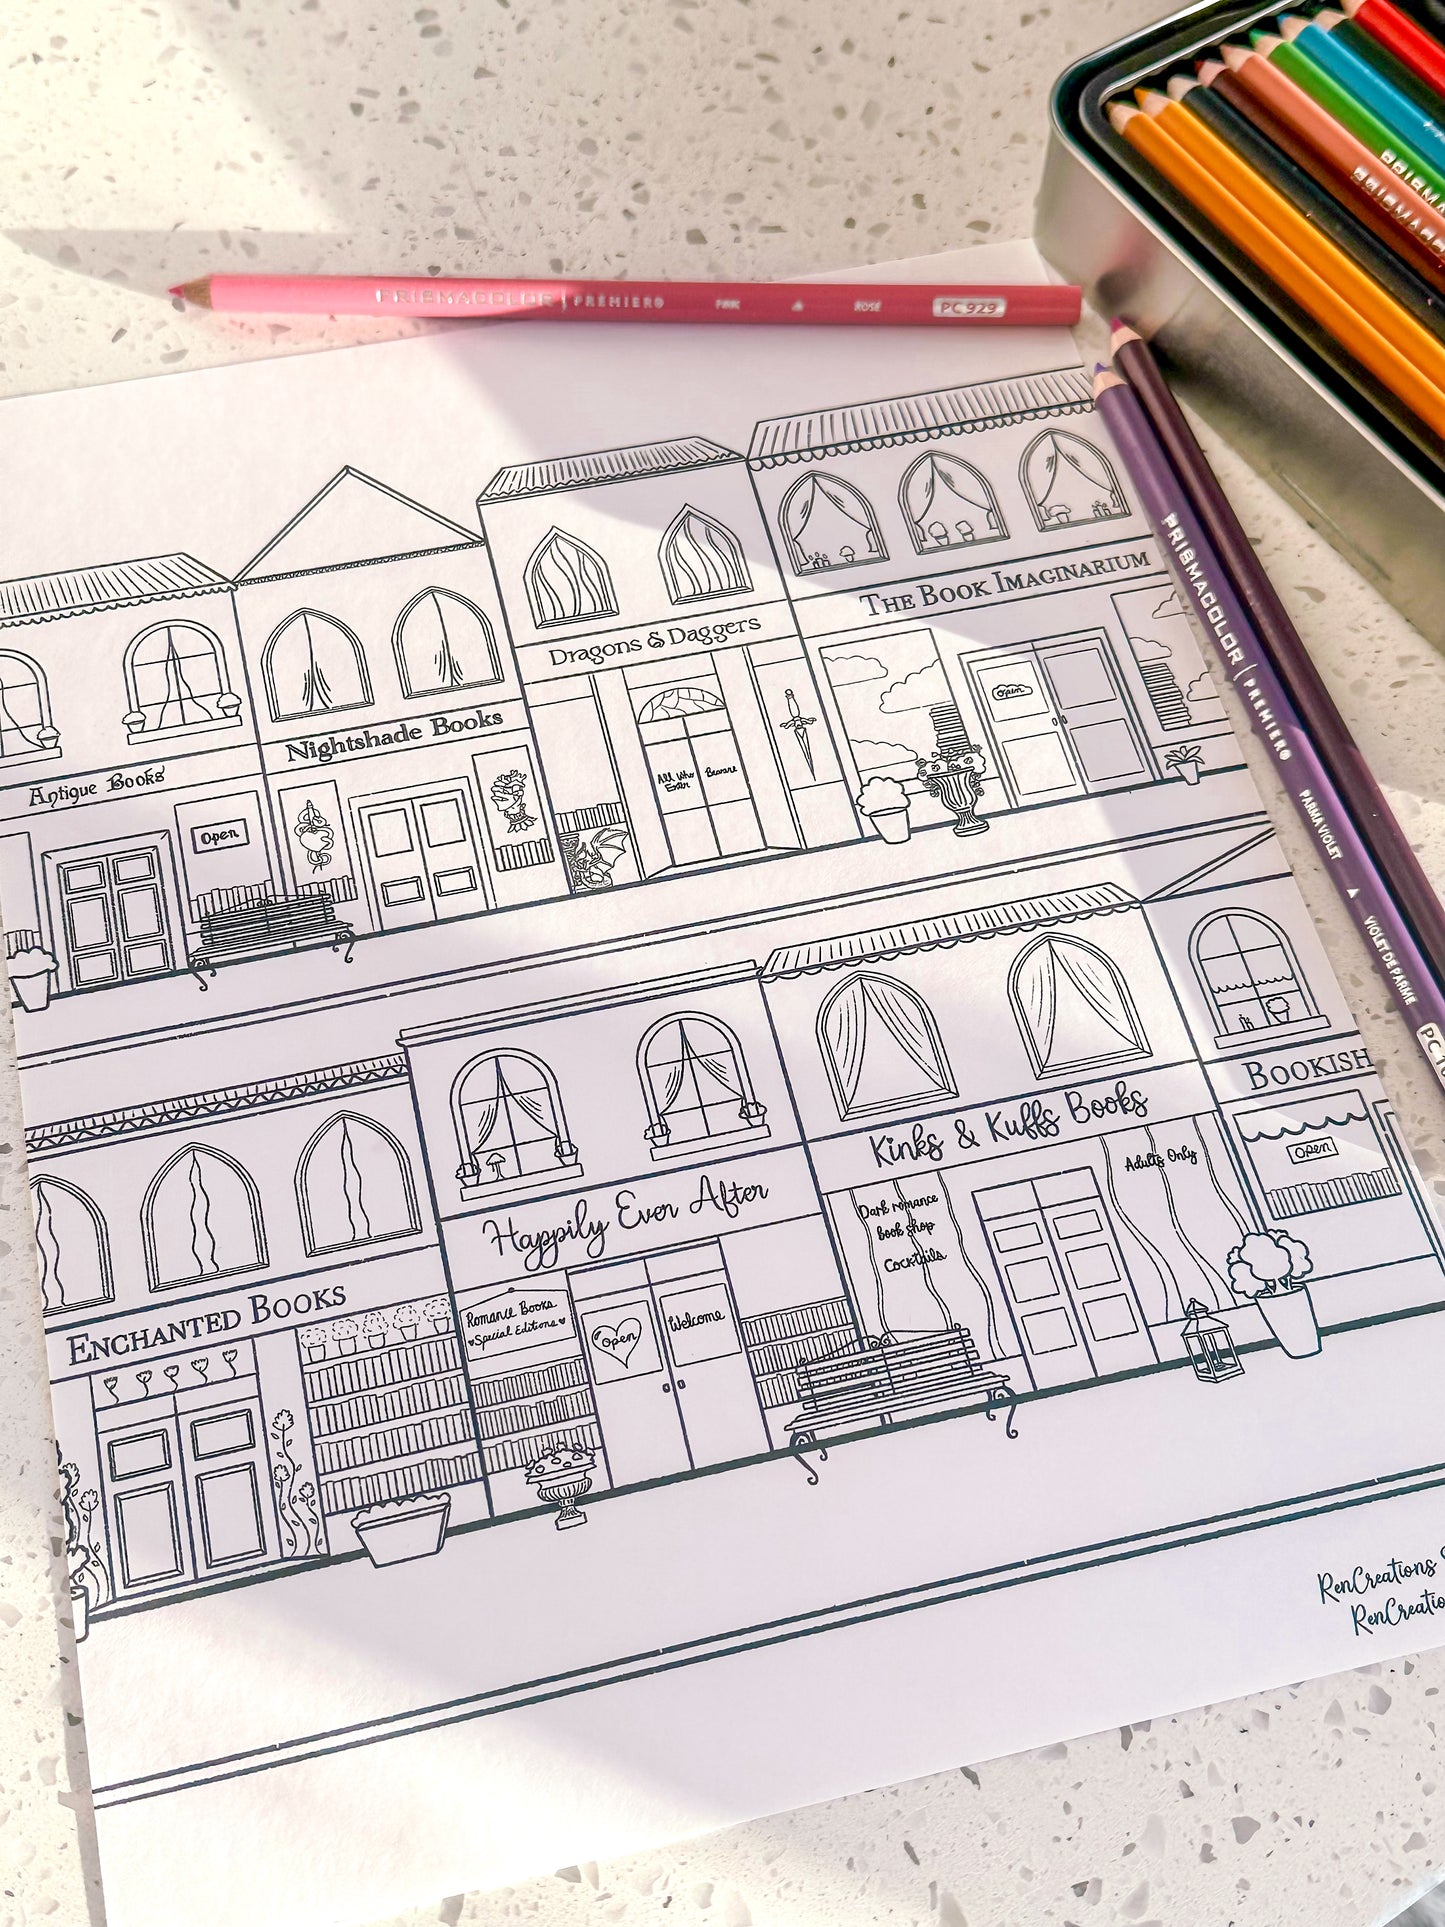 PRISMACOLOR | PREMIER® PINK ROSE PC 929
PRISMA
PRISMACO
PRISMACOLOR | PREMIER® PARMA VIOLET VIOLET DE PARME
Antique Books
Open
Nightshade Books
Dragons & Daggers
All Who
Enter
Beware
The Book Imaginarium
Open
Enchanted Books
Happily Ever After
Romance Books
Special Editions
Open
Welcome
Kinks & Kuffs Books
Dark romance
book shop
Cocktails
Adults Only
Bookish
Open
RenCreations
RenCreatio